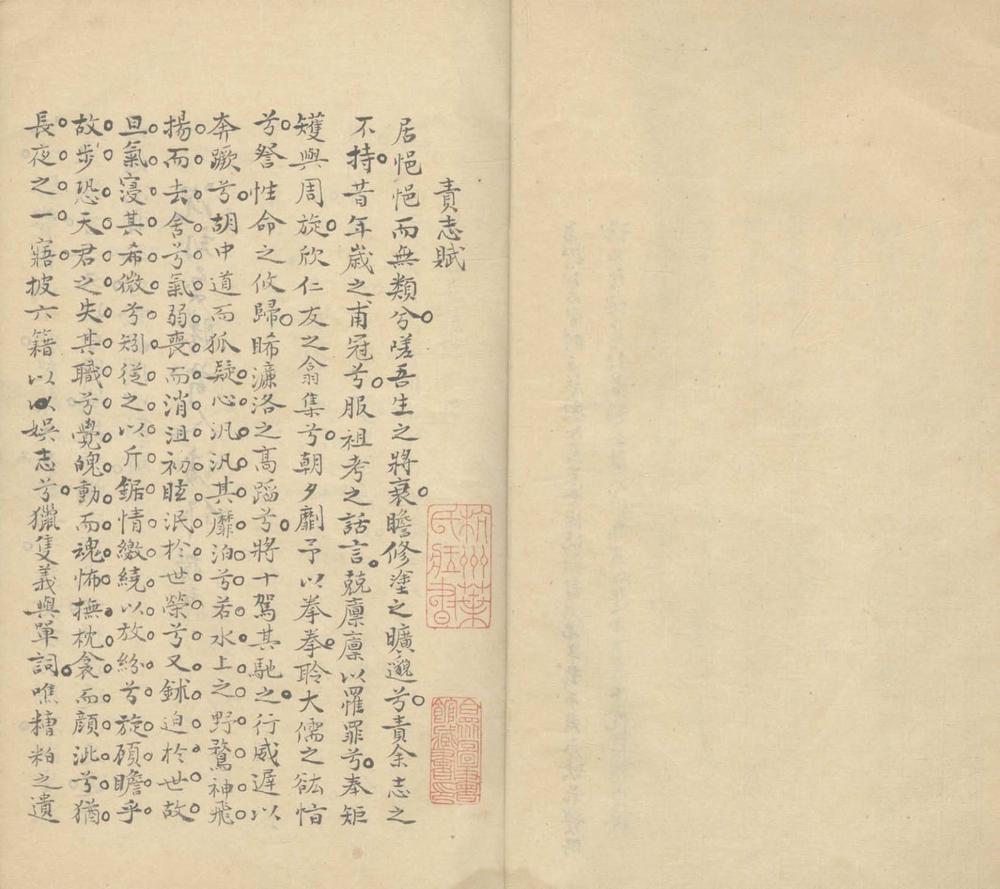 責志賦
居悒悒而無類兮嗟吾生之將衰瞻修塗之曠邈兮責余志之
不持昔年歲之甫冠兮服祖考之話言兢凛凛以罹罪兮奉矩
矱與周旋欣仁友之翕集兮朝夕劘予以拳拳聆大儒之谹
兮詧性命之攸歸睎濂洛之高蹈兮將十駕其馳之行威遲以
奔蹶兮胡中道而狐疑心汎汎其靡泊兮若水上之野鶩神飛
揚而去舍兮氣弱喪而消沮初眩泯於世榮兮又鉥迫於世故
旦氣寖其希微兮矧從之以斤鋸情繳繞以放紛兮旋頎瞻乎
故步恐天君之失其職兮覺魄動而魂怖撫枕衾而顏泚兮猶
長夜之一寤披六籍以以娱志兮獵隻義與單詞噍糟粕之遺
杭州葉氏藏書